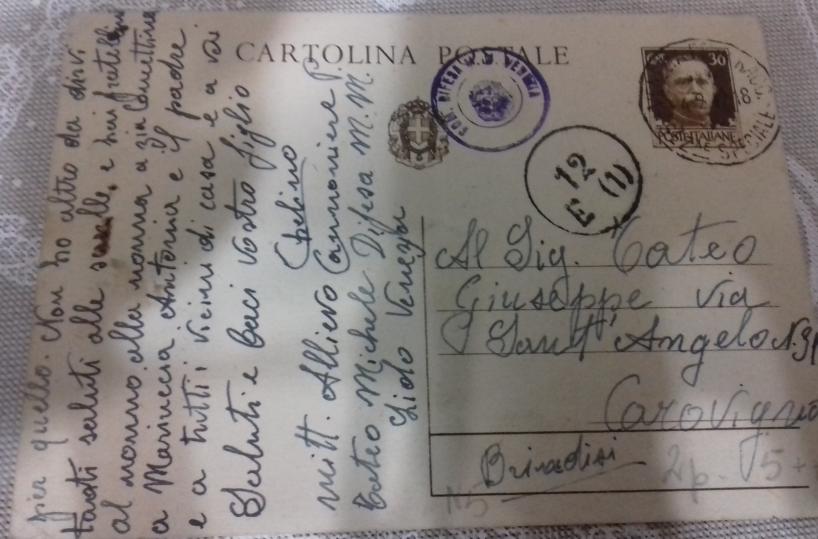 CARTOLINA POSTALE
30
POSTE ITALIANE
COM. DIFESA M.M. VENEZIA
12
(1)
per quello. Non ho altro da dirvi
tanti saluti alle sorelle, e miei fratellini
al nonno alla nonna a zia
a Marinuccia Antonia e il padre
e a tutti i vicini di casa e a voi
Saluti e baci vostro figlio
mitt. Allievo Cannoniere P.
Cateo Michele Difesa M.M.
Lido Venezia
Al Sig. Cateo
Giuseppe via
Sant'Angelo N.
Carovigno
Brindisi